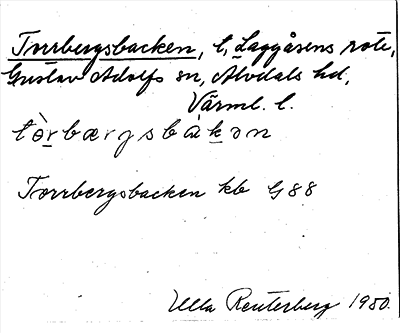 Torrbergsbacken, l, Laggåsens rote,
Gustav Adolfs sn, Älvdals hd,
Värml. l.
tòrbærgsbàkən
Torrbergsbacken kb G88
Ulla Reuterberg 1950.